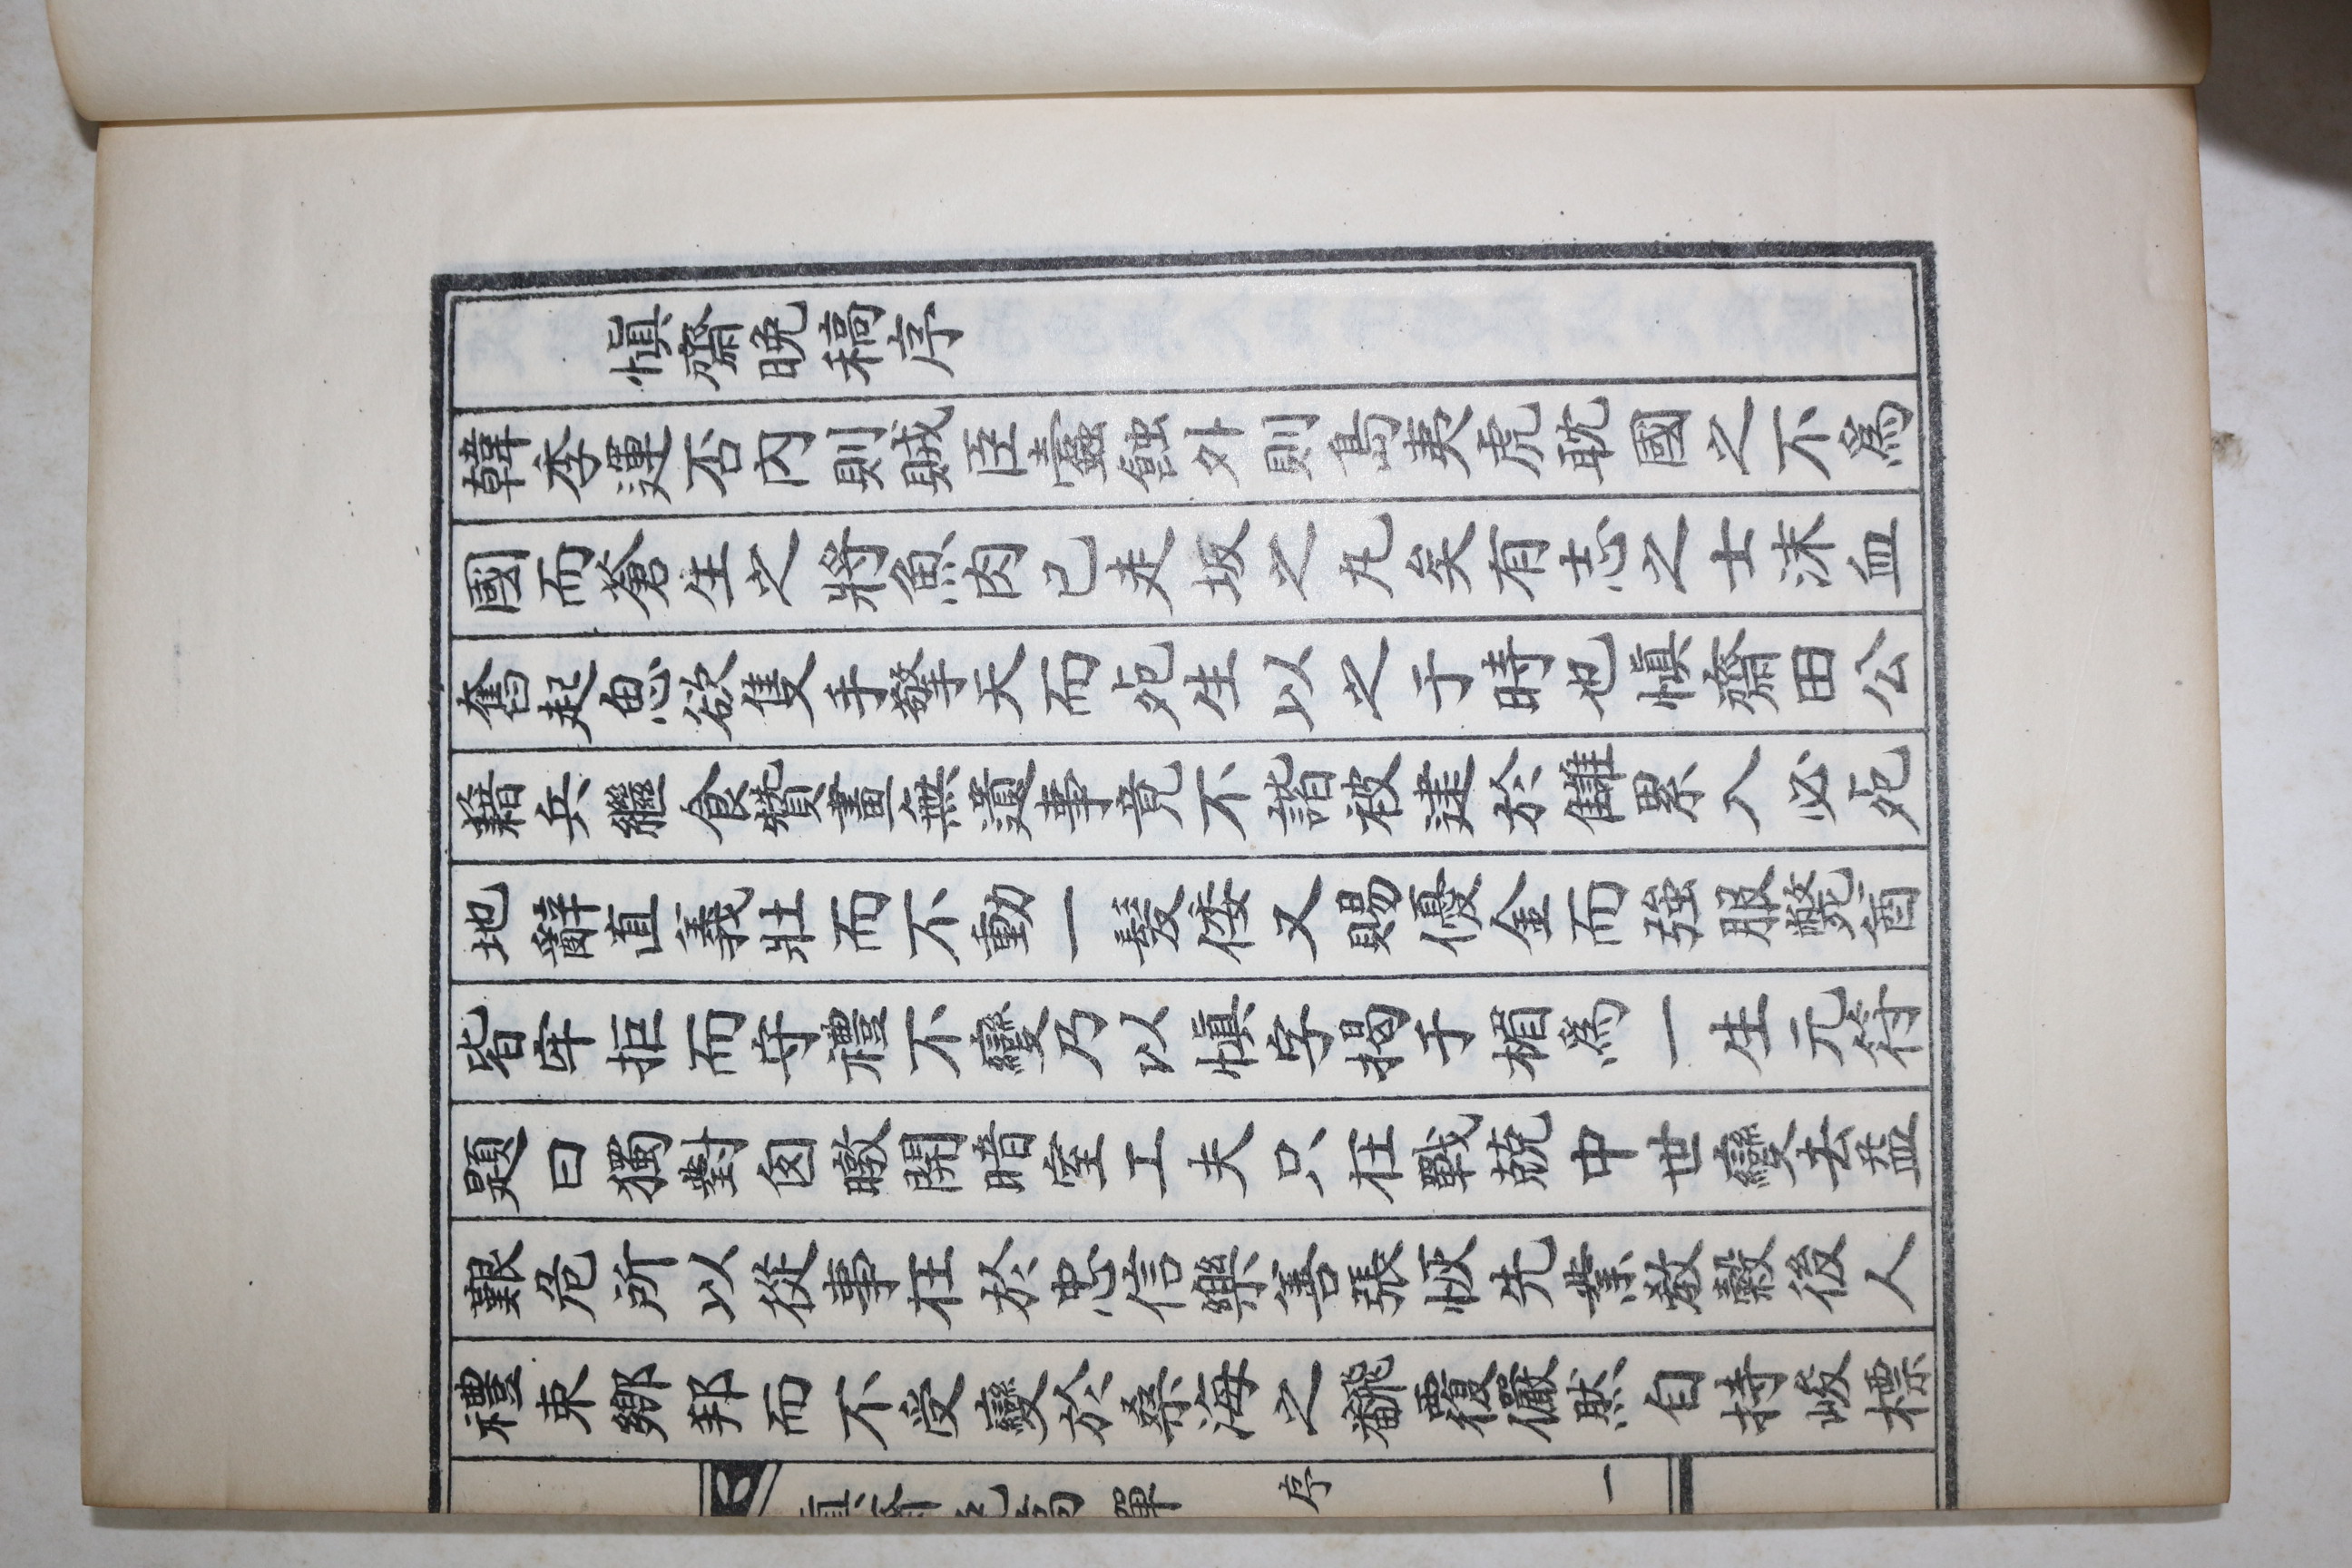 愼齋晩稿序
韓季運否內則賊臣蠧蝕外則島夷虎耽國之不爲
國而蒼生之將魚肉已走坂之丸矣有志之士沫血
奮起思欲隻手擎天而死生以之于時也愼齋田公
藉兵繼食贊畫無遺事竟不諧被逮於讎累入必死
地辭直義壯而不動一髮倭又賜優金而強服氅啇
皆牢拒而守禮不變乃以愼字揭于楣爲一生元符
題曰獨對囱曒開暗室工夫只在戰兢中世變去益
艱危所以從事在於忠信樂善張恢先業敎穀後人
禮束鄕邦而不受變於桑海之飜覆儼然自持峻標
序 一